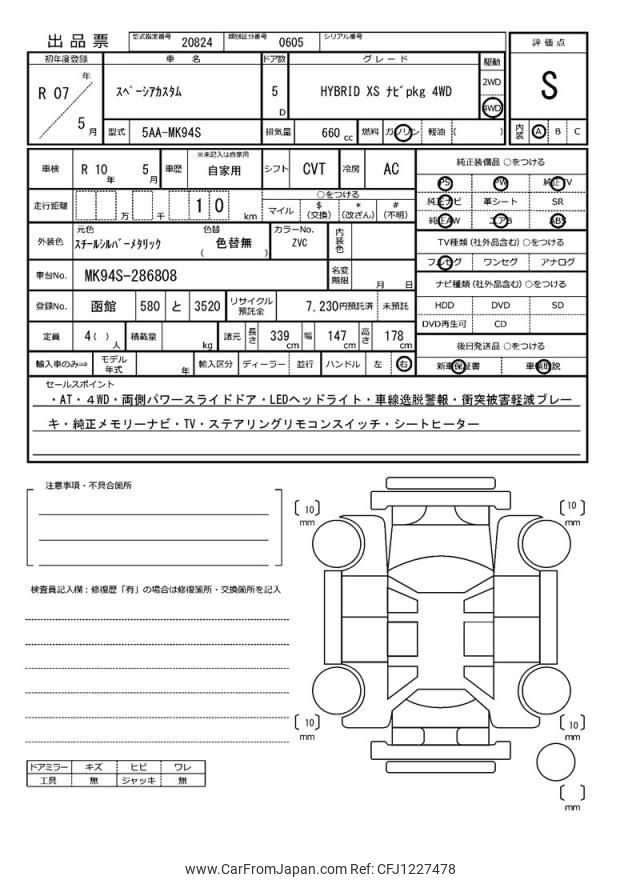 出品票 型式指定番号 20824 類別区分番号 0605 シリアル番号
初年度登録 車名 ドア数 グレード 駆動 評価点
R 07 年 5 月 スペーシアカスタム 5 D HYBRID XS ナビpkg 4WD 2WD 4WD S
型式 5AA-MK94S 排気量 660 cc 燃料 ガソリン 軽油 ( ) 内装 A B C
車検 R 10 年 5 月 車歴 ※未記入は自家用 自家用 シフト CVT 冷房 AC 純正装備品 ○をつける
PS PW 純正TV
走行距離 万 千 1 0 km ○をつける 純正ナビ 革シート SR
マイル $(交換) *(改ざん) #(不明) 純正AW エアB ABS
外装色 元色 スチールシルバーメタリック 色替 ( 色替無 ) カラーNo. ZVC 内装色 TV種類(社外品含む)○をつける
フルセグ ワンセグ アナログ
車台No. MK94S-286808 名変期限 月 日 ナビ種類(社外品含む)○をつける
登録No. 函館 580 と 3520 リサイクル預託金 7,230円預託済 未預託 HDD DVD SD
DVD再生可 CD
定員 4 ( ) 人 積載量 kg 諸元 長さ 339 cm 幅 147 cm 高さ 178 cm 後日発送品 ○をつける
輸入車のみ⇒ モデル年式 年 輸入区分 ディーラー 並行 ハンドル 左 右 新車保証書 車輌取説
セールスポイント
・AT・4WD・両側パワースライドドア・LEDヘッドライト・車線逸脱警報・衝突被害軽減ブレー
キ・純正メモリーナビ・TV・ステアリングリモコンスイッチ・シートヒーター
注意事項・不具合箇所
〔 10 〕 mm 〔 10 〕 mm
検査員記入欄:修復歴「有」の場合は修復箇所・交換箇所を記入
〔 10 〕 mm 〔 10 〕 mm
ドアミラー キズ ヒビ ワレ
工具 無 ジャッキ 無
〔 〕 mm
www.CarFromJapan.com Ref: CFJ1227478